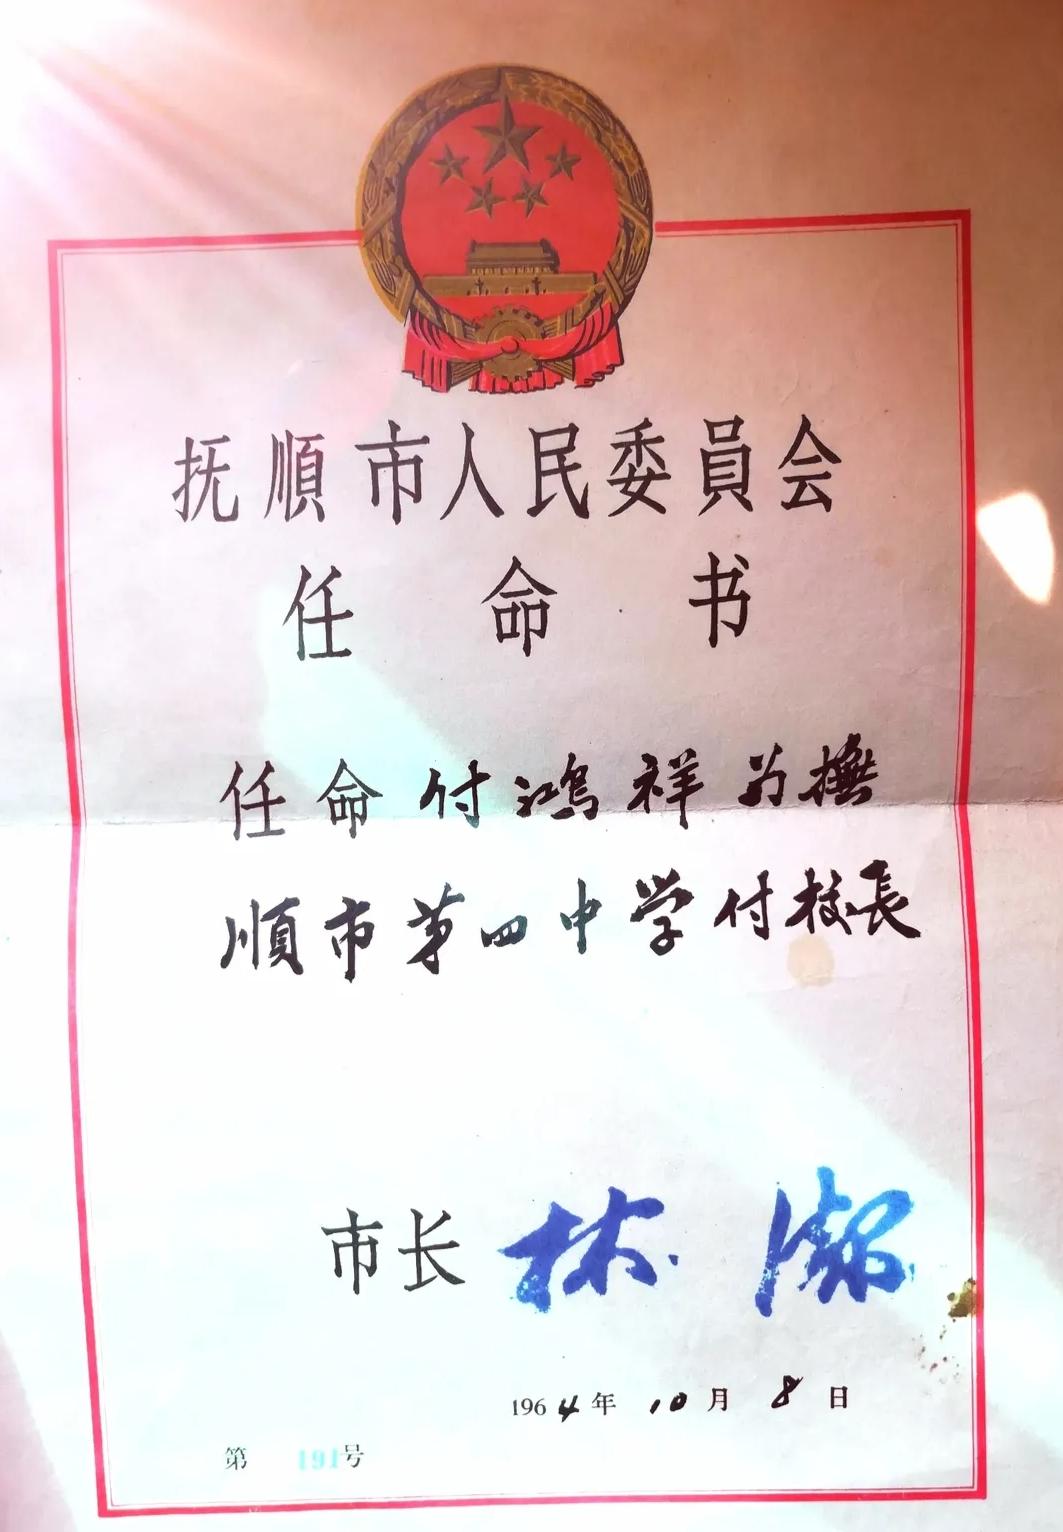 抚順市人民委員会
任命书
任命付鴻祥为撫
順市第四中学付校長
市长 林
1964年10月8日
第191号